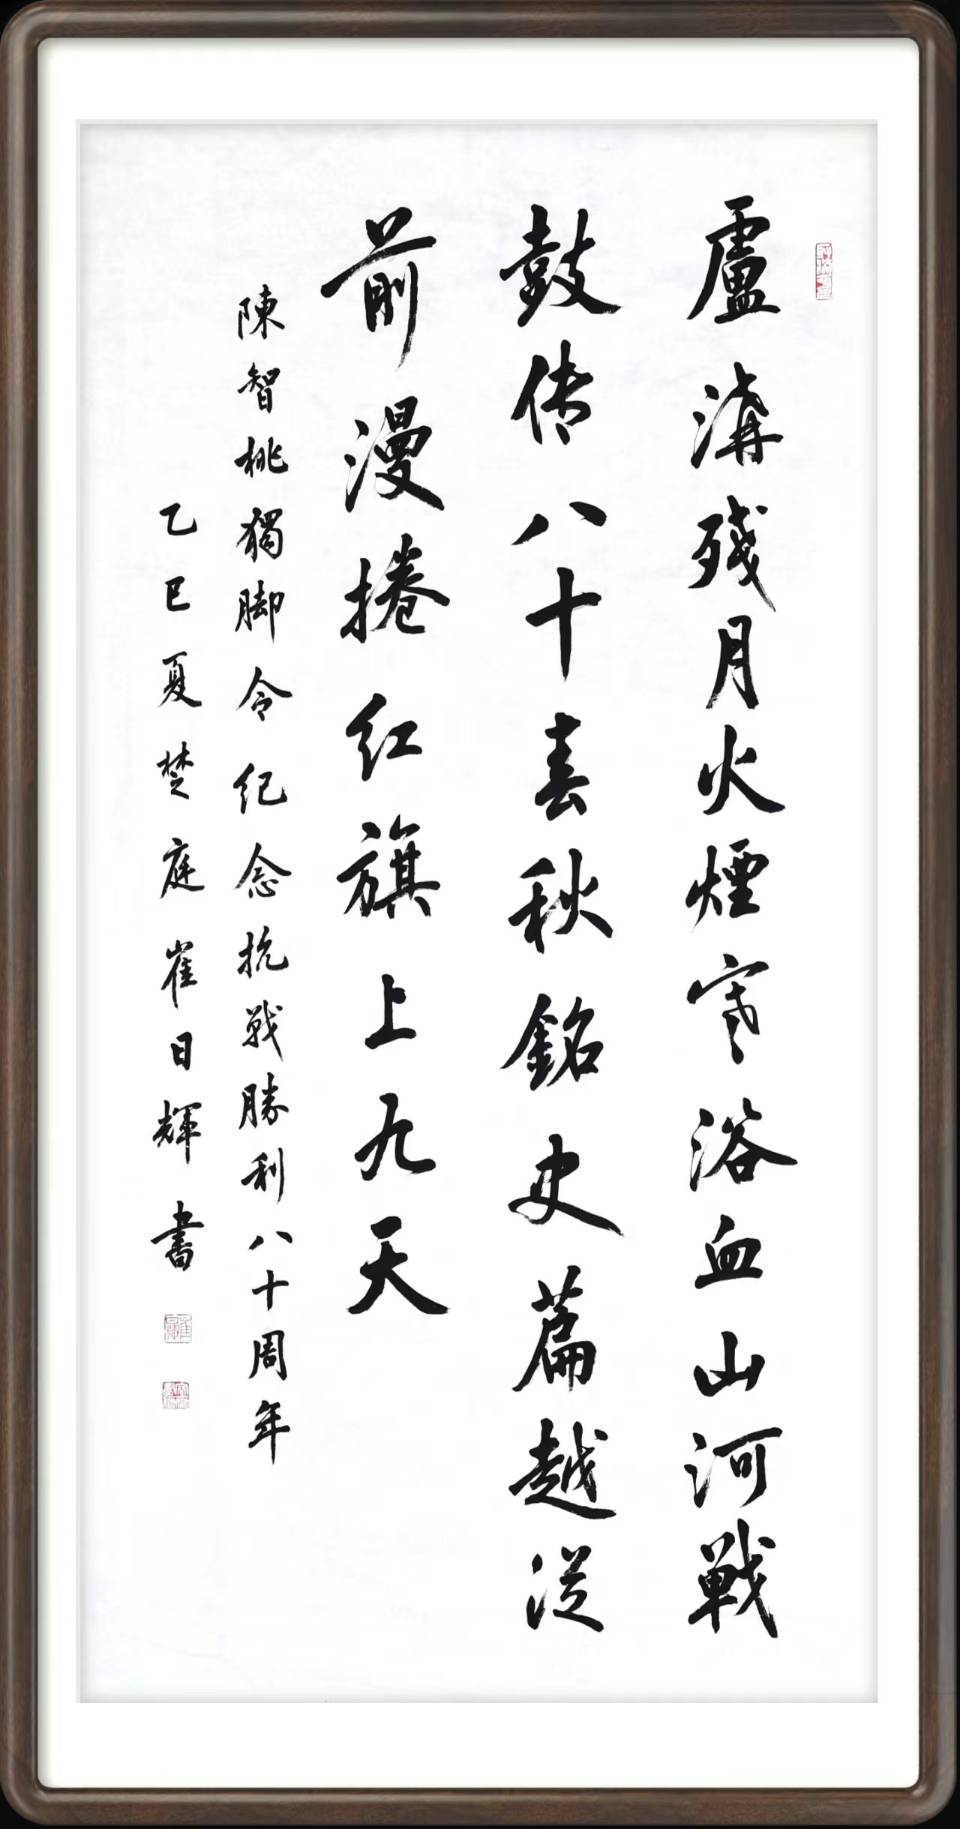 盧溝殘月火煙寒浴血山河戰
鼓传八十春秋銘史篇越從
前漫捲红旗上九天
陳智桃獨脚令纪念抗戰勝利八十周年
乙巳夏楚庭崔日輝書